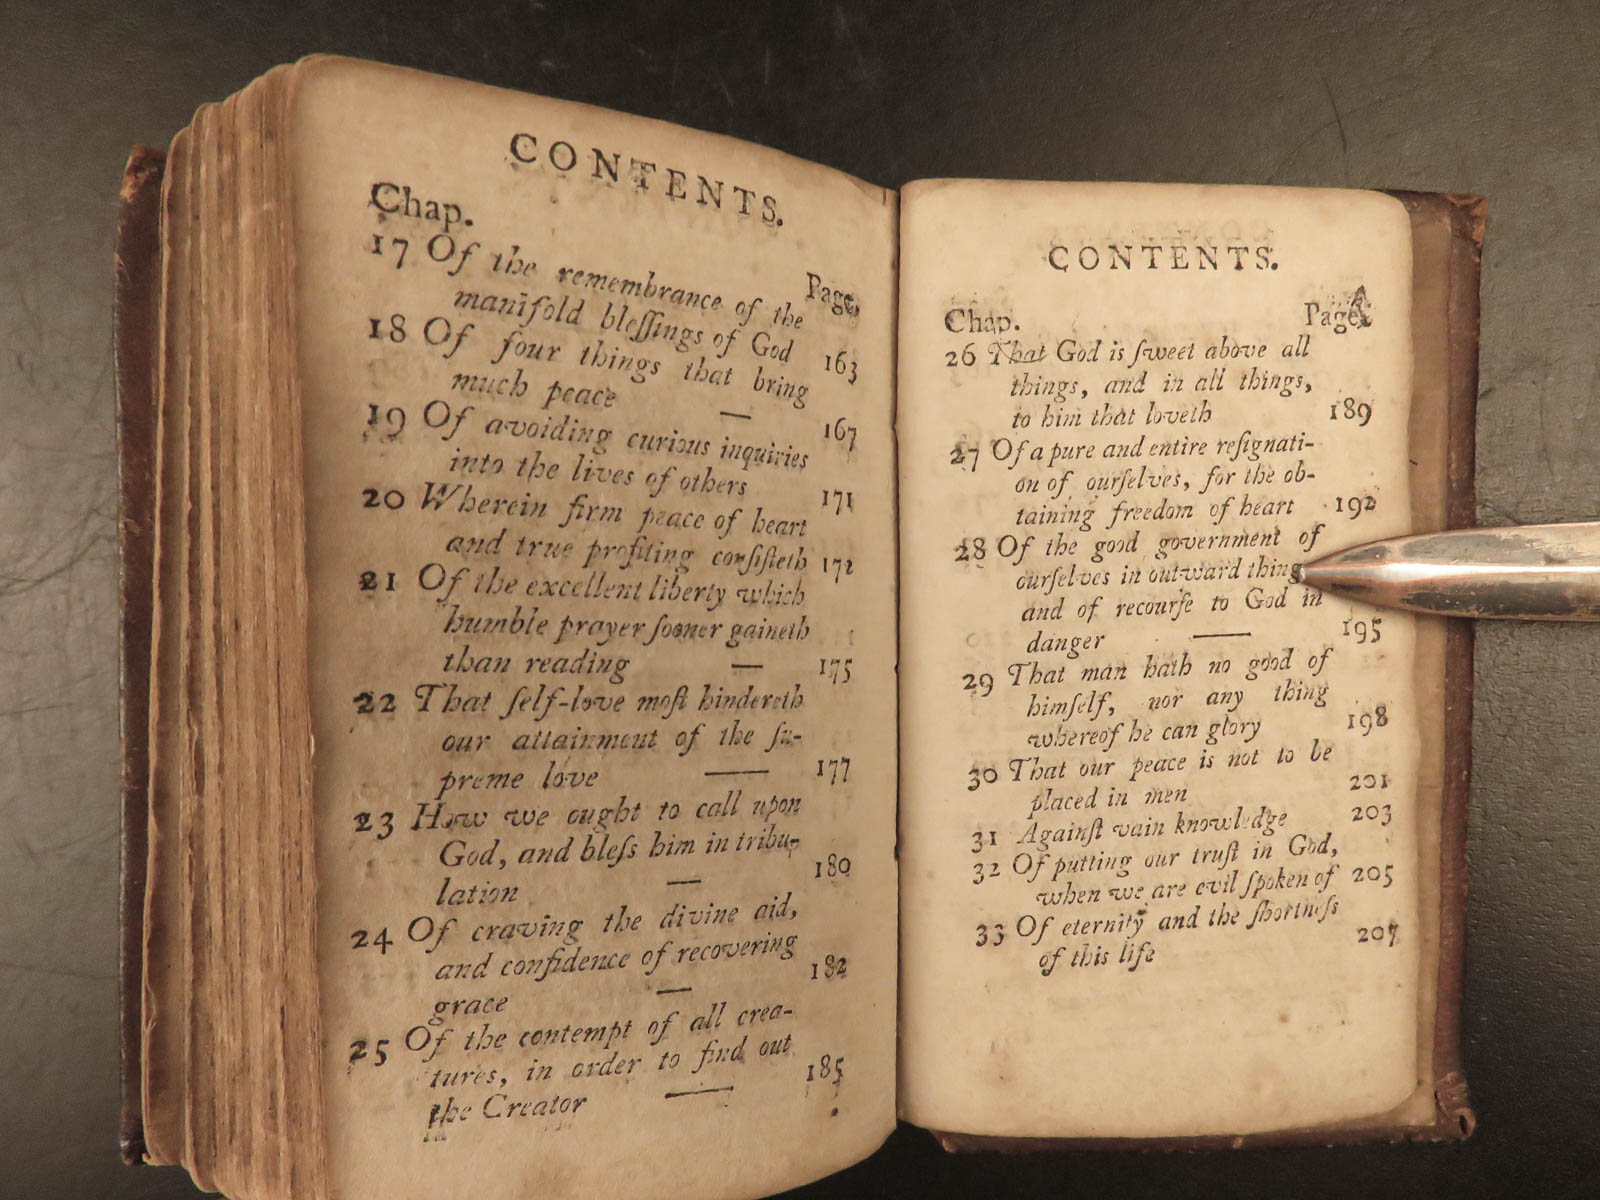 CONTENTS.
Chap.
Page.
17 Of the remembrance of the
manifold bleſſings of God 163
18 Of four things that bring
much peace — 167
19 Of avoiding curious inquiries
into the lives of others 171
20 Wherein firm peace of heart
and true profiting conſiſteth 172
21 Of the excellent liberty which
humble prayer ſooner gaineth
than reading — 175
22 That ſelf-love moſt hindereth
our attainment of the ſu-
preme love — 177
23 How we ought to call upon
God, and bleſs him in tribu-
lation — 180
24 Of craving the divine aid,
and confidence of recovering
grace — 182
25 Of the contempt of all crea-
tures, in order to find out
the Creator — 185
CONTENTS.
Chap. Page.
26 That God is ſweet above all
things, and in all things,
to him that loveth 189
27 Of a pure and entire reſignati-
on of ourſelves, for the ob-
taining freedom of heart 192
28 Of the good government of
ourſelves in outward thing
and of recourſe to God in
danger — 195
29 That man hath no good of
himſelf, nor any thing
whereof he can glory 198
30 That our peace is not to be
placed in men 201
31 Againſt vain knowledge 203
32 Of putting our truſt in God,
when we are evil ſpoken of 205
33 Of eternity and the ſhortneſs
of this life 207